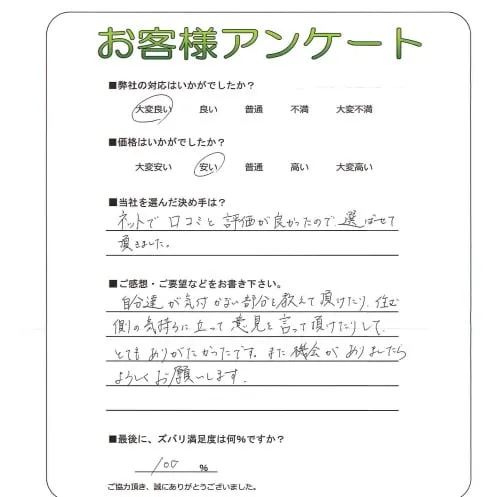 お客様アンケート
■弊社の対応はいかがでしたか？
大変良い 良い 普通 不満 大変不満
■価格はいかがでしたか？
大変安い 安い 普通 高い 大変高い
■当社を選んだ決め手は？
ネットで口コミと評価が良かったので、選ばせて
頂きました。
■ご感想・ご要望などをお書き下さい。
自分達が気付かない部分を教えて頂けたり、住む
側の気持ちに立って意見を言って頂けたりして、
とてもありがたかったです。また機会がありましたら
よろしくお願いします。
■最後に、ズバリ満足度は何%ですか？
100 %
ご協力頂き、誠にありがとうございました。